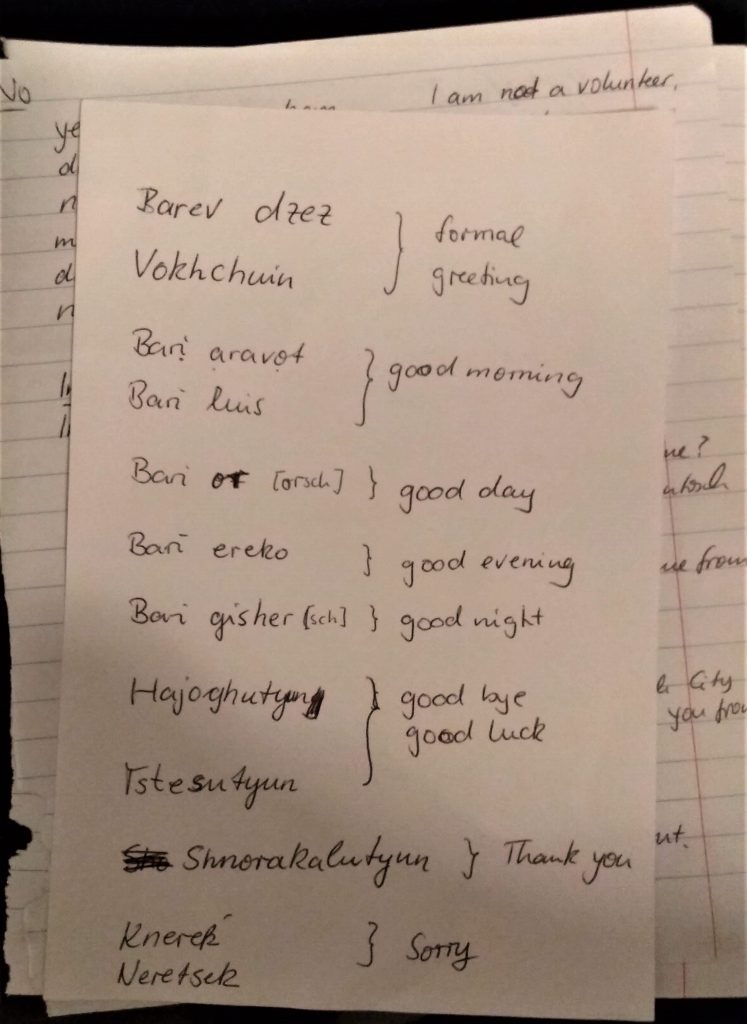 No
I am not a volunteer.
ye
d
n
m
d
n
Barev dzez
Vokhchuin
} formal
greeting
Bari aravot
Bari luis
} good morning
Bari or [orsch] } good day
Bari ereko } good evening
Bari gisher [sch] } good night
Hajoghutyun
Tstesutyun
} good bye
good luck
Shnorakalutyun } Thank you
Knerek
Neretsek
} Sorry
me?
me from
City
you from